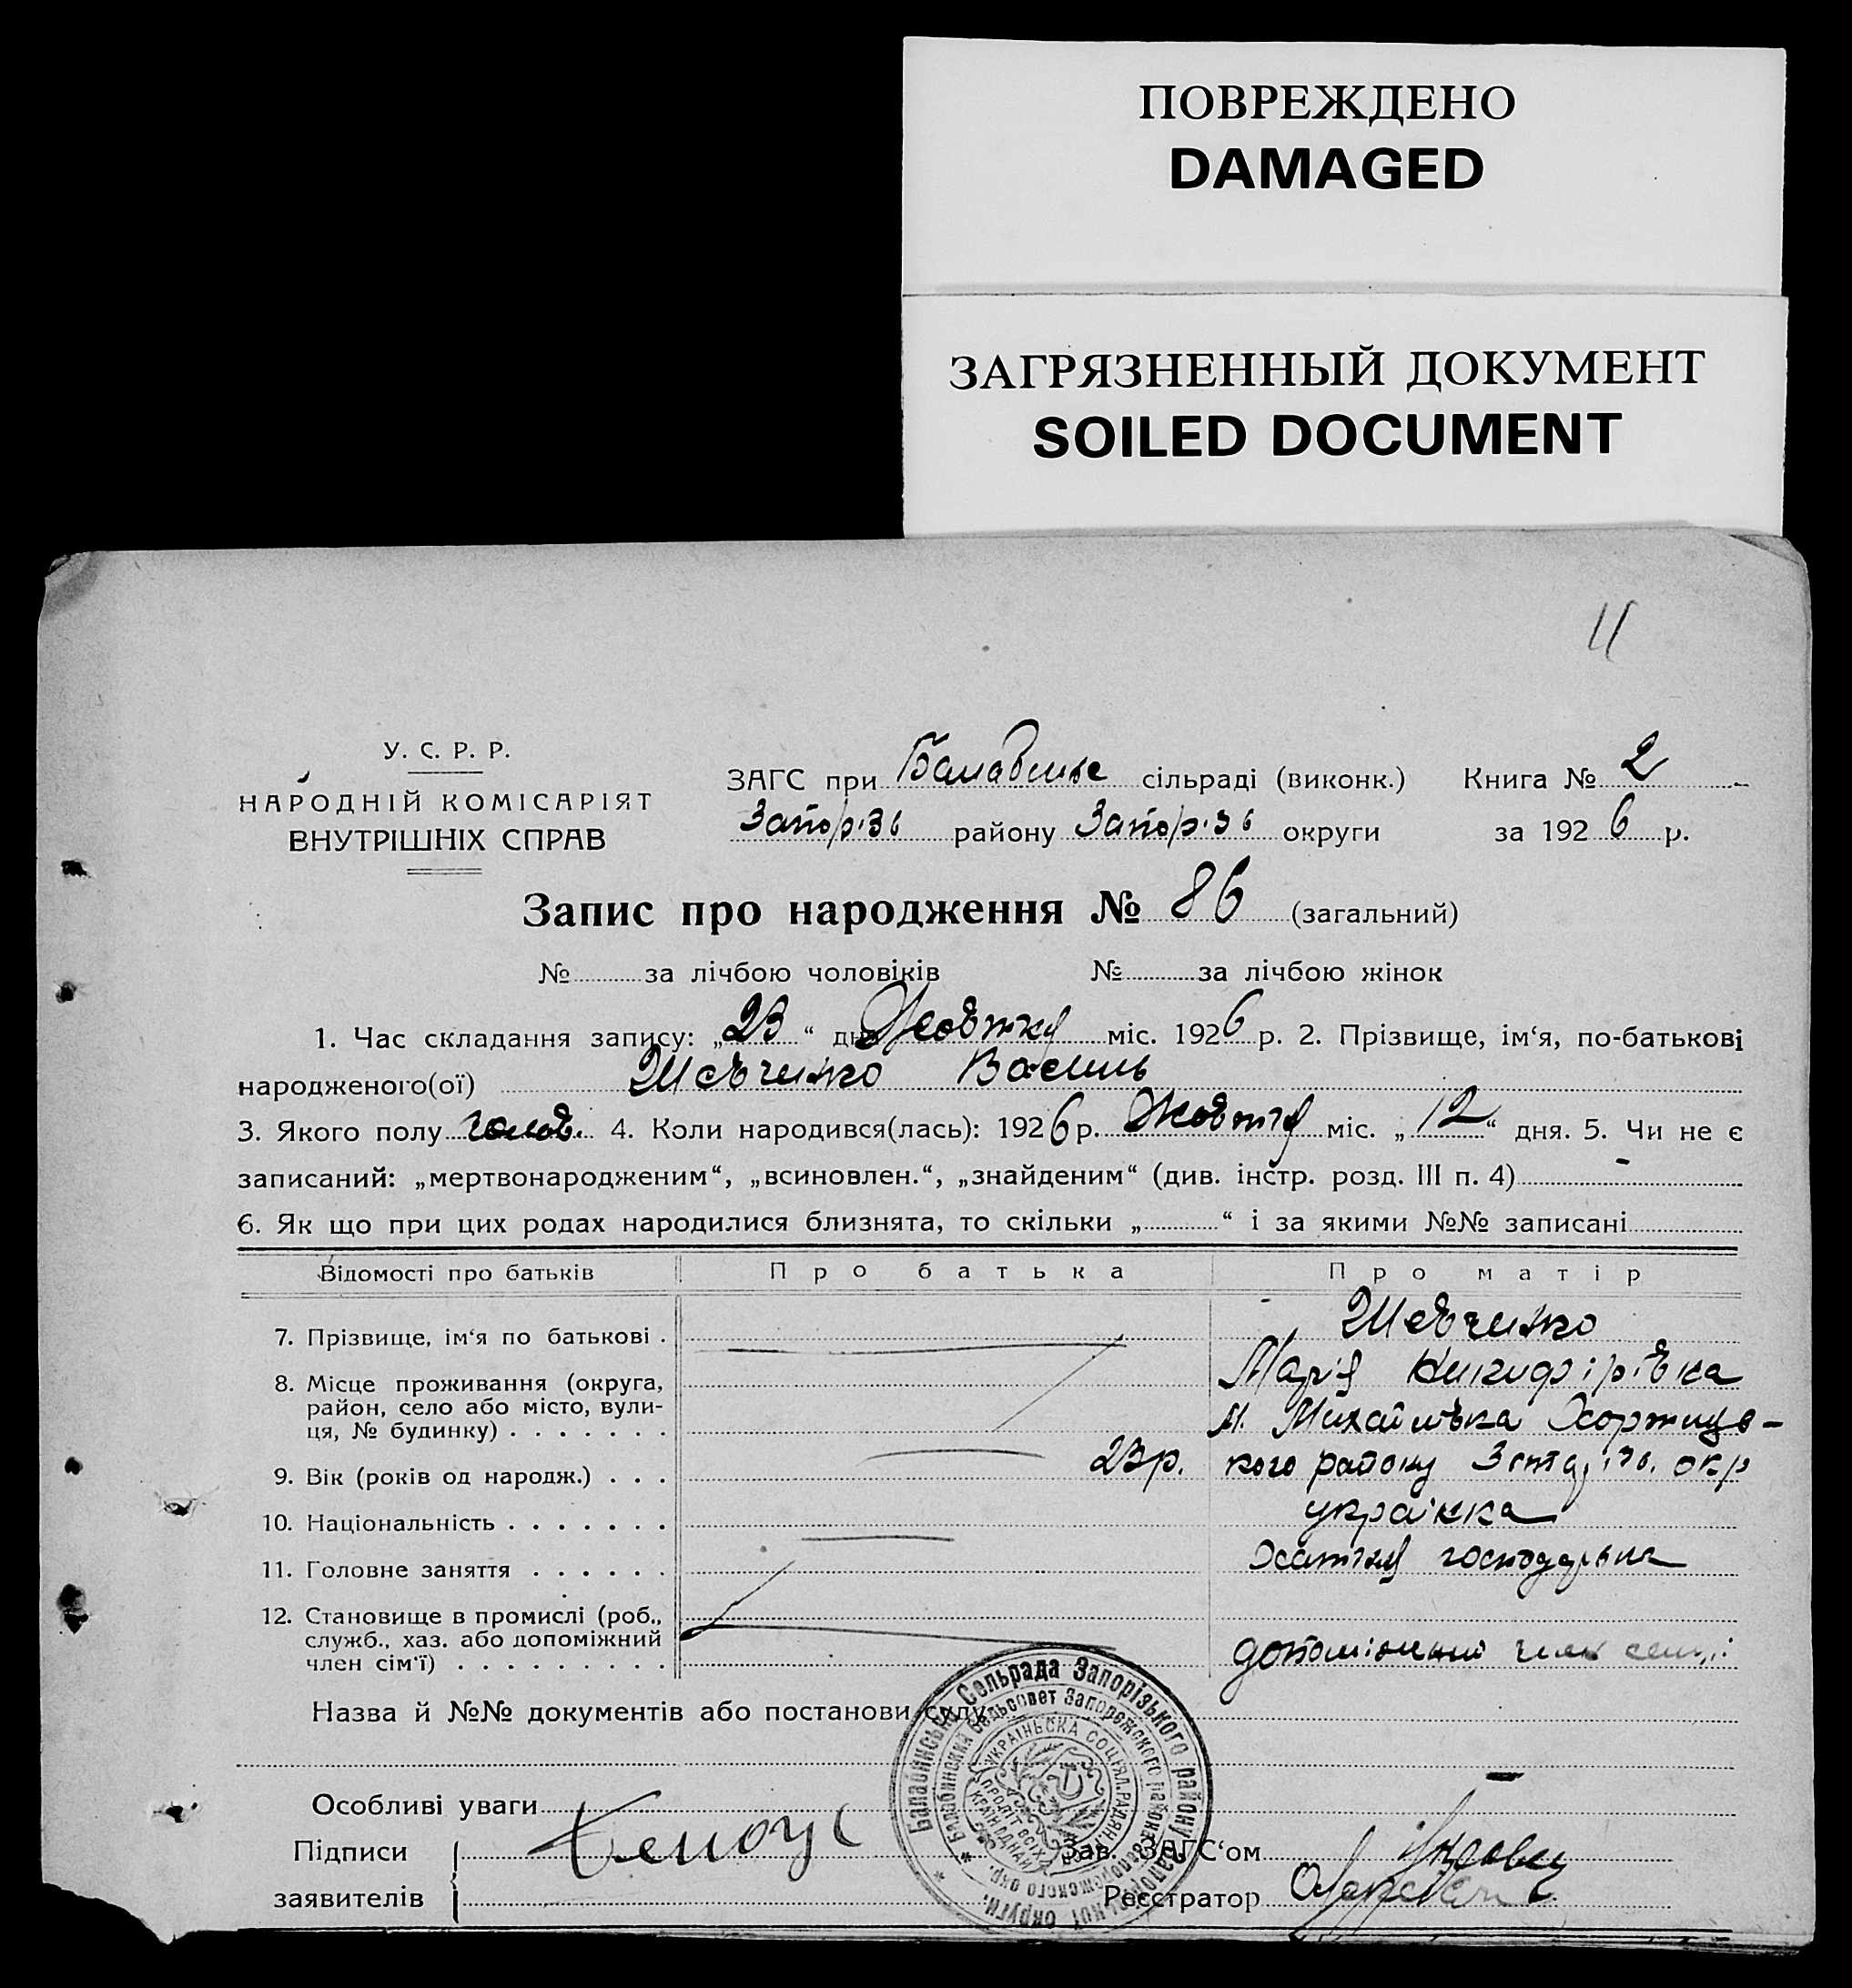 ПОВРЕЖДЕНО
DAMAGED
ЗАГРЯЗНЕННЫЙ ДОКУМЕНТ
SOILED DOCUMENT
11
У. С. Р. Р.
НАРОДНІЙ КОМІСАРІЯТ
ВНУТРІШНІХ СПРАВ
ЗАГС при Балабинське сільраді (виконк.) Книга № 2
Запоріз району Запоріз округи за 1926 р.
Запис про народження № 86 (загальний)
№ за лічбою чоловіків № за лічбою жінок
1. Час складання запису: „23“ дня Жовтня міс. 1926 р. 2. Прізвище, ім‘я, по-батькові
народженого(ої) Шевченко Василь
3. Якого полу чолов. 4. Коли народився(лась): 1926 р. Жовтня міс. „12“ дня. 5. Чи не є
записаний: „мертвонародженим“, „всиновлен.“, „знайденим“ (див. інстр. розд. III п. 4) -
6. Як що при цих родах народилися близнята, то скільки „ “ і за якими №№ записані
Відомості про батьків Про батька Про матір
7. Прізвище, ім‘я по батькові . Шевченко
Марія Никифірівна
8. Місце проживання (округа,
район, село або місто, вули-
ця, № будинку) . . . . . . . Михайлівка Хортице-
9. Вік (років од народж.) . . . 23 р. кого району окр
10. Національність . . . . . . . українка
11. Головне заняття . . . . . . Хатня господарка
12. Становище в промислі (роб.,
служб., хаз. або допоміжний
член сім‘ї) . . . . . . . . . допоміжний член семі
Назва й №№ документів або постанови суду
Балабинська Сельрада Запорізького району Запорізької округи.
Балабинский Сельсовет Запорожского района Запорожского окр.
УКРАЇНЬСКА СОЦІЯЛ. РАДЯН.
ПРОЛІТ ВСІХ КРАЇН ЄДНАЙ
Особливі уваги
Підписи Зав. ЗАГС‘ом
заявителів Реєстратор